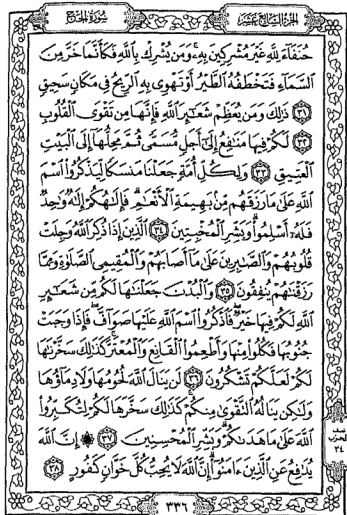 الجزء السابع عشر
سورة الحج
حُنَفَآءَ لِلَّهِ غَيْرَ مُشْرِكِينَ بِهِۦ ۚ وَمَن يُشْرِكْ بِٱللَّهِ فَكَأَنَّمَا خَرَّ مِنَ
ٱلسَّمَآءِ فَتَخْطَفُهُ ٱلطَّيْرُ أَوْ تَهْوِى بِهِ ٱلرِّيحُ فِى مَكَانٍ سَحِيقٍ
٣١ ذَٰلِكَ وَمَن يُعَظِّمْ شَعَـٰٓئِرَ ٱللَّهِ فَإِنَّهَا مِن تَقْوَى ٱلْقُلُوبِ
٣٢ لَكُمْ فِيهَا مَنَـٰفِعُ إِلَىٰٓ أَجَلٍ مُّسَمًّى ثُمَّ مَحِلُّهَآ إِلَى ٱلْبَيْتِ
ٱلْعَتِيقِ ٣٣ وَلِكُلِّ أُمَّةٍ جَعَلْنَا مَنسَكًا لِّيَذْكُرُوا۟ ٱسْمَ
ٱللَّهِ عَلَىٰ مَا رَزَقَهُم مِّنۢ بَهِيمَةِ ٱلْأَنْعَـٰمِ ۗ فَإِلَـٰهُكُمْ إِلَـٰهٌ وَٰحِدٌ
فَلَهُۥٓ أَسْلِمُوا۟ ۗ وَبَشِّرِ ٱلْمُخْبِتِينَ ٣٤ ٱلَّذِينَ إِذَا ذُكِرَ ٱللَّهُ وَجِلَتْ
قُلُوبُهُمْ وَٱلصَّـٰبِرِينَ عَلَىٰ مَآ أَصَابَهُمْ وَٱلْمُقِيمِى ٱلصَّلَوٰةِ وَمِمَّا
رَزَقْنَـٰهُمْ يُنفِقُونَ ٣٥ وَٱلْبُدْنَ جَعَلْنَـٰهَا لَكُم مِّن شَعَـٰٓئِرِ
ٱللَّهِ لَكُمْ فِيهَا خَيْرٌ ۖ فَٱذْكُرُوا۟ ٱسْمَ ٱللَّهِ عَلَيْهَا صَوَآفَّ ۖ فَإِذَا وَجَبَتْ
جُنُوبُهَا فَكُلُوا۟ مِنْهَا وَأَطْعِمُوا۟ ٱلْقَانِعَ وَٱلْمُعْتَرَّ ۚ كَذَٰلِكَ سَخَّرْنَـٰهَا
لَكُمْ لَعَلَّكُمْ تَشْكُرُونَ ٣٦ لَن يَنَالَ ٱللَّهَ لُحُومُهَا وَلَا دِمَآؤُهَا
وَلَـٰكِن يَنَالُهُ ٱلتَّقْوَىٰ مِنكُمْ ۚ كَذَٰلِكَ سَخَّرَهَا لَكُمْ لِتُكَبِّرُوا۟
ٱللَّهَ عَلَىٰ مَا هَدَىٰكُمْ ۗ وَبَشِّرِ ٱلْمُحْسِنِينَ ٣٧ ۞ إِنَّ ٱللَّهَ
يُدَٰفِعُ عَنِ ٱلَّذِينَ ءَامَنُوٓا۟ ۗ إِنَّ ٱللَّهَ لَا يُحِبُّ كُلَّ خَوَّانٍ كَفُورٍ ٣٨
نصف
الحزب
٣٤
٣٣٦